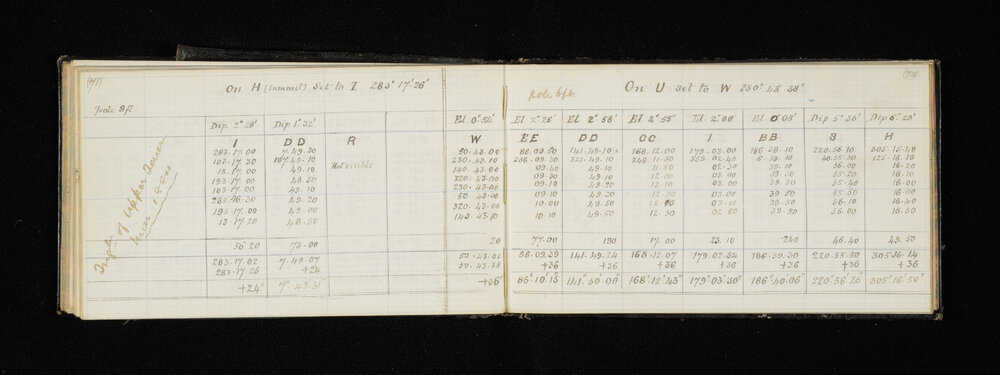 (71)
On H (summit) Set to I 283° 17' 26"
Pole 9ft
Dip. 2° 26' Dip 1° 32'
I DD R
283.17.00 7.49.30
103.17.30 187.49.10 Not visible
13.17.00 49.10
193.17.00 48.50
103.17.00 49.10
283.16.50 49.20
193.17.00 49.00
13.17.20 48.50
56.20 73.00
283.17.02 7.49.07
283.17.26 +24
+24" 7° 49' 31"
Trigl. of Upper
1800
74
On U set to W 230° 43' 38"
Pole 6ft
El 2° 26' El 2° 58' El 2° 58' Dip 5° 36' Dip 6° 29'
W EE DD CC I BB S H
50.43.00 86.09.50 141.49.10 168.12.00 179.03.00 186.39.10 220.56.10 305.15.40
230.43.10 321.49.10 348.11.50 359.02.40 6.39.10 40.55.50 125.16.10
140.43.00 09.40 49.10 11.50 02.30 39.10 56.00 16.20
320.43.00 09.30 49.10 12.00 03.00 39.30 55.20 16.10
230.43.00 09.10 49.20 12.10 03.00 39.50 55.40 16.00
50.43.00 09.10 49.30 12.30 03.00 39.50 55.40 16.50
320.43.00 10.00 49.50 03.10 39.50 56.10 16.40
140.43.10 10.10 49.50 12.30 02.50 39.50 56.00 16.50
20 77.00 190 17.00 23.10 240 46.40 49.50
86.09.39 141.49.24 168.12.07 179.02.54 186.39.30 220.55.50 305.16.14
+36 +36 +36 +36 +36 +36 +36
+36" 86° 10' 15" 141° 50' 00" 168° 12' 43" 179° 03' 30" 186° 40' 06" 220° 56' 26" 305° 16' 50"